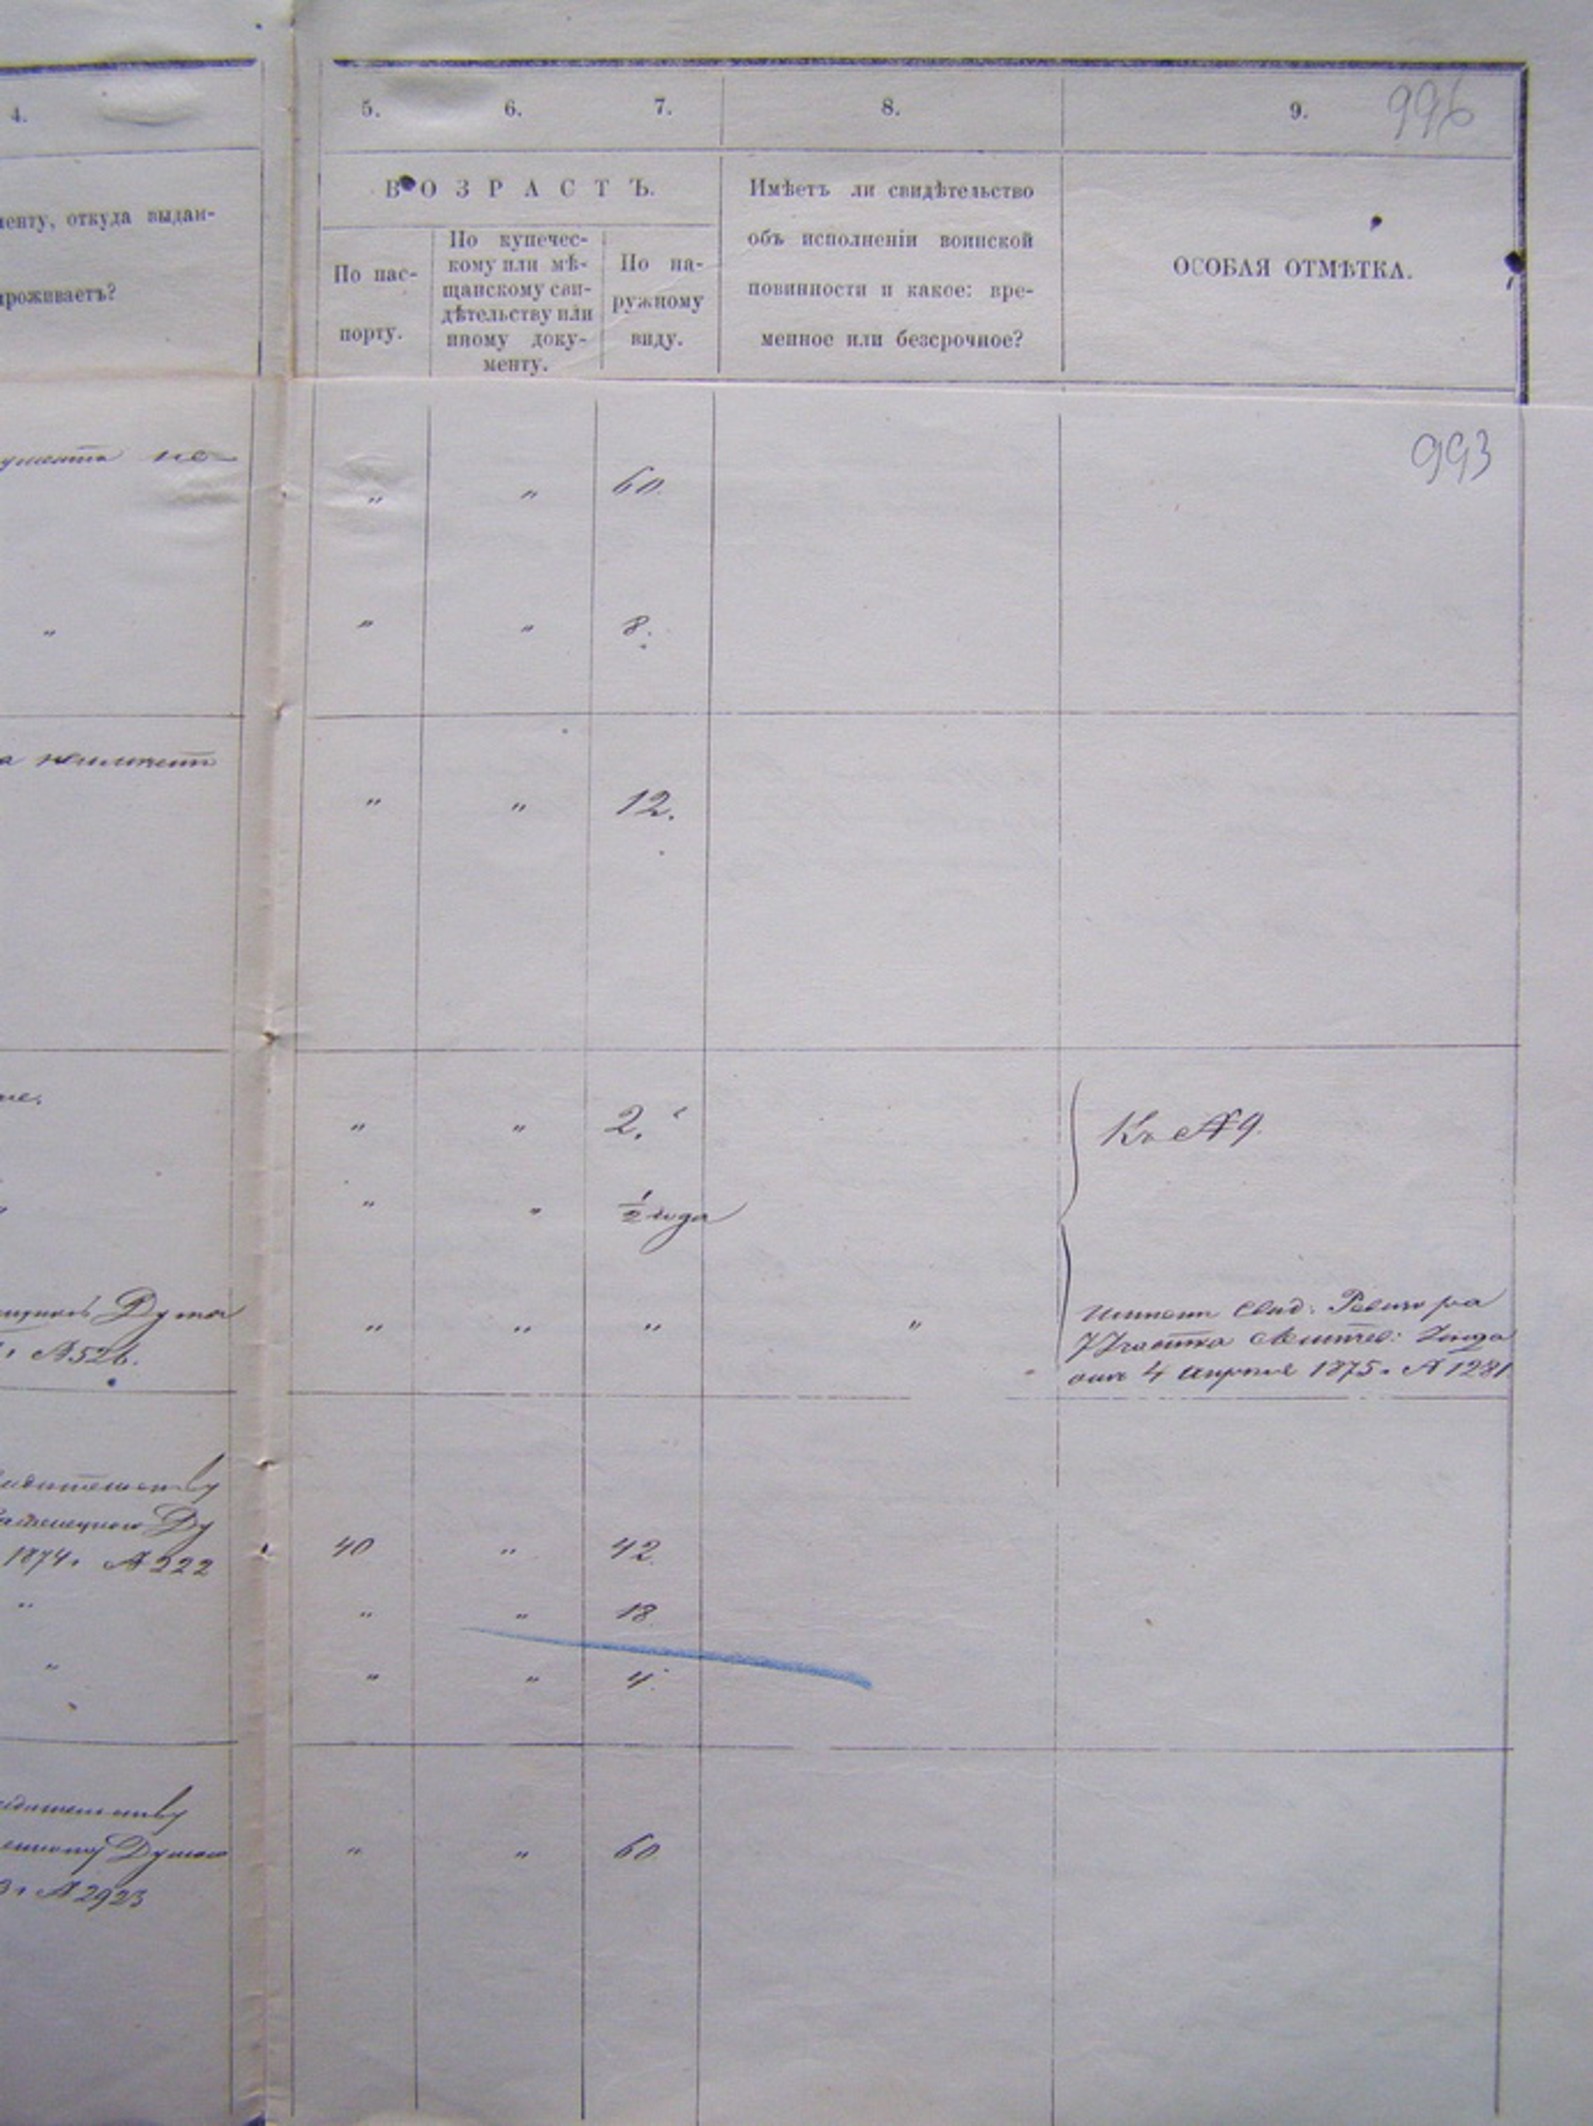 4. 5. 6. 7. 8. 9. 996
менту, откуда выдан-
проживаетъ?
ВОЗРАСТЪ.
По пас-
порту.
По купечес-
кому или мѣ-
щанскому сви-
дѣтельству или
иному доку-
менту.
По на-
ружному
виду.
Имѣетъ ли свидѣтельство
объ исполненіи воинской
повинности и какое: вре-
менное или безсрочное?
ОСОБАЯ ОТМѢТКА.
993
не-
„ „ 60.
„ „ „ 8.
неимѣетъ
„ „ 12.
„ „ 2.
Къ № 9.
„ „ ½ года
Дума
№ 526.
„ „ „ „
Имѣетъ Свид: Ревизора
7 Участка
отъ 4 Апрѣля 1875. № 1281
Ду
1874. № 222
40 „ 42.
„ „ „ 18.
„ „ „ 4.
Думою
№ 2923
„ „ 60.